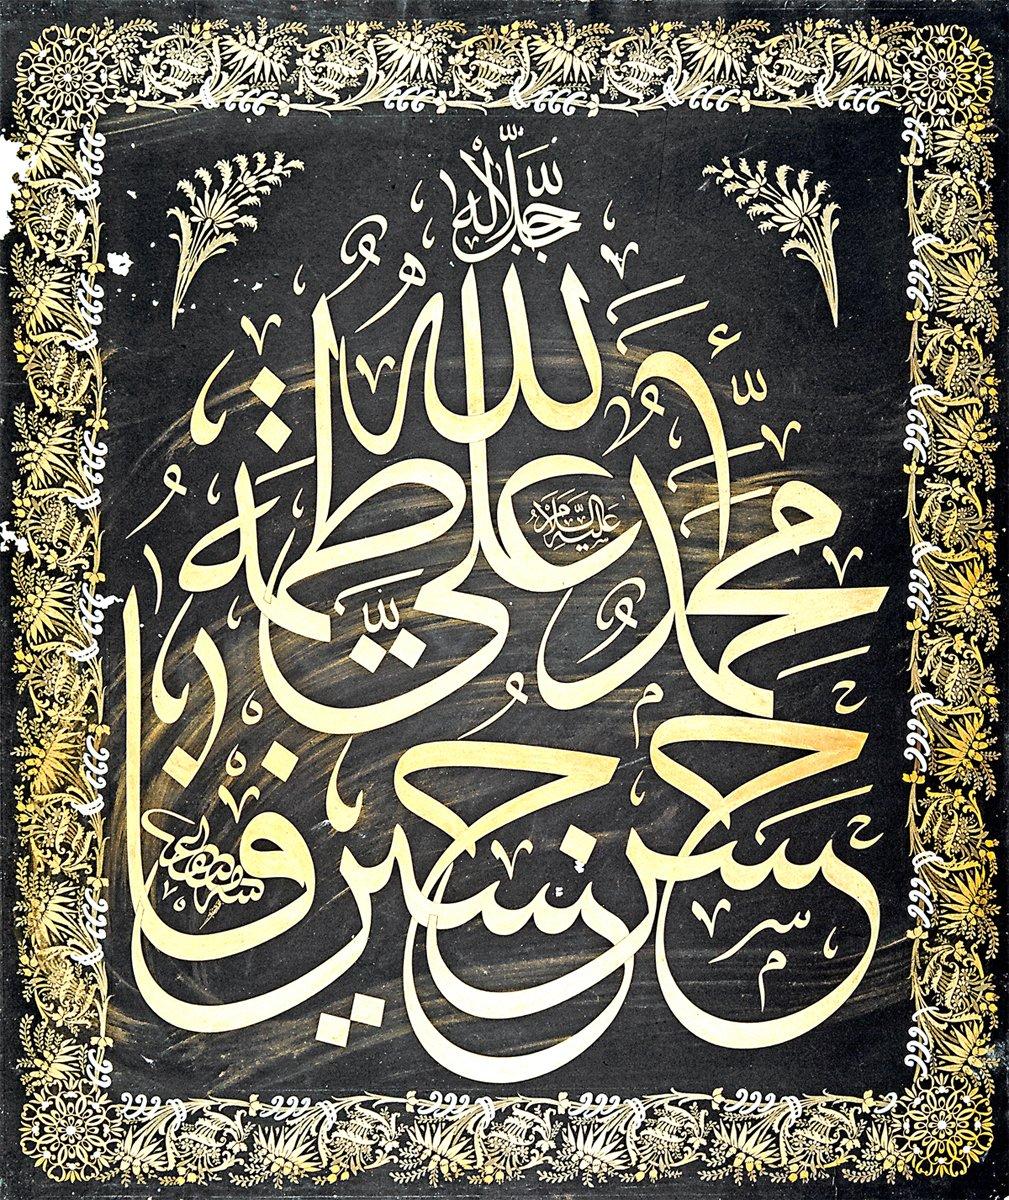 جل جلاله
الله
محمد علي فاطمه
عليه السلام
حسن حسين يا